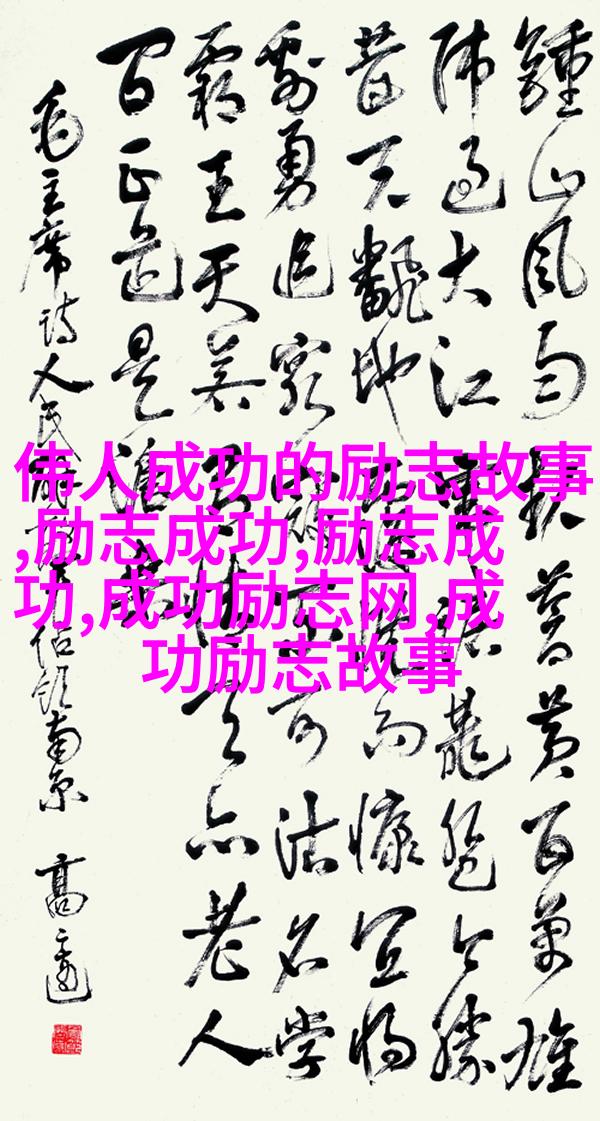 鍾山风雨起苍黄百万雄
师过大江虎踞龙盘今胜
昔天翻地覆慨而慷宜将
剩勇追穷寇不可沽名学
霸王天若有情天亦老人
间正道是沧桑
毛主席诗人民解放军占领南京
伟人成功的励志故事
,励志成功,励志成
功,成功励志网,成
功励志故事